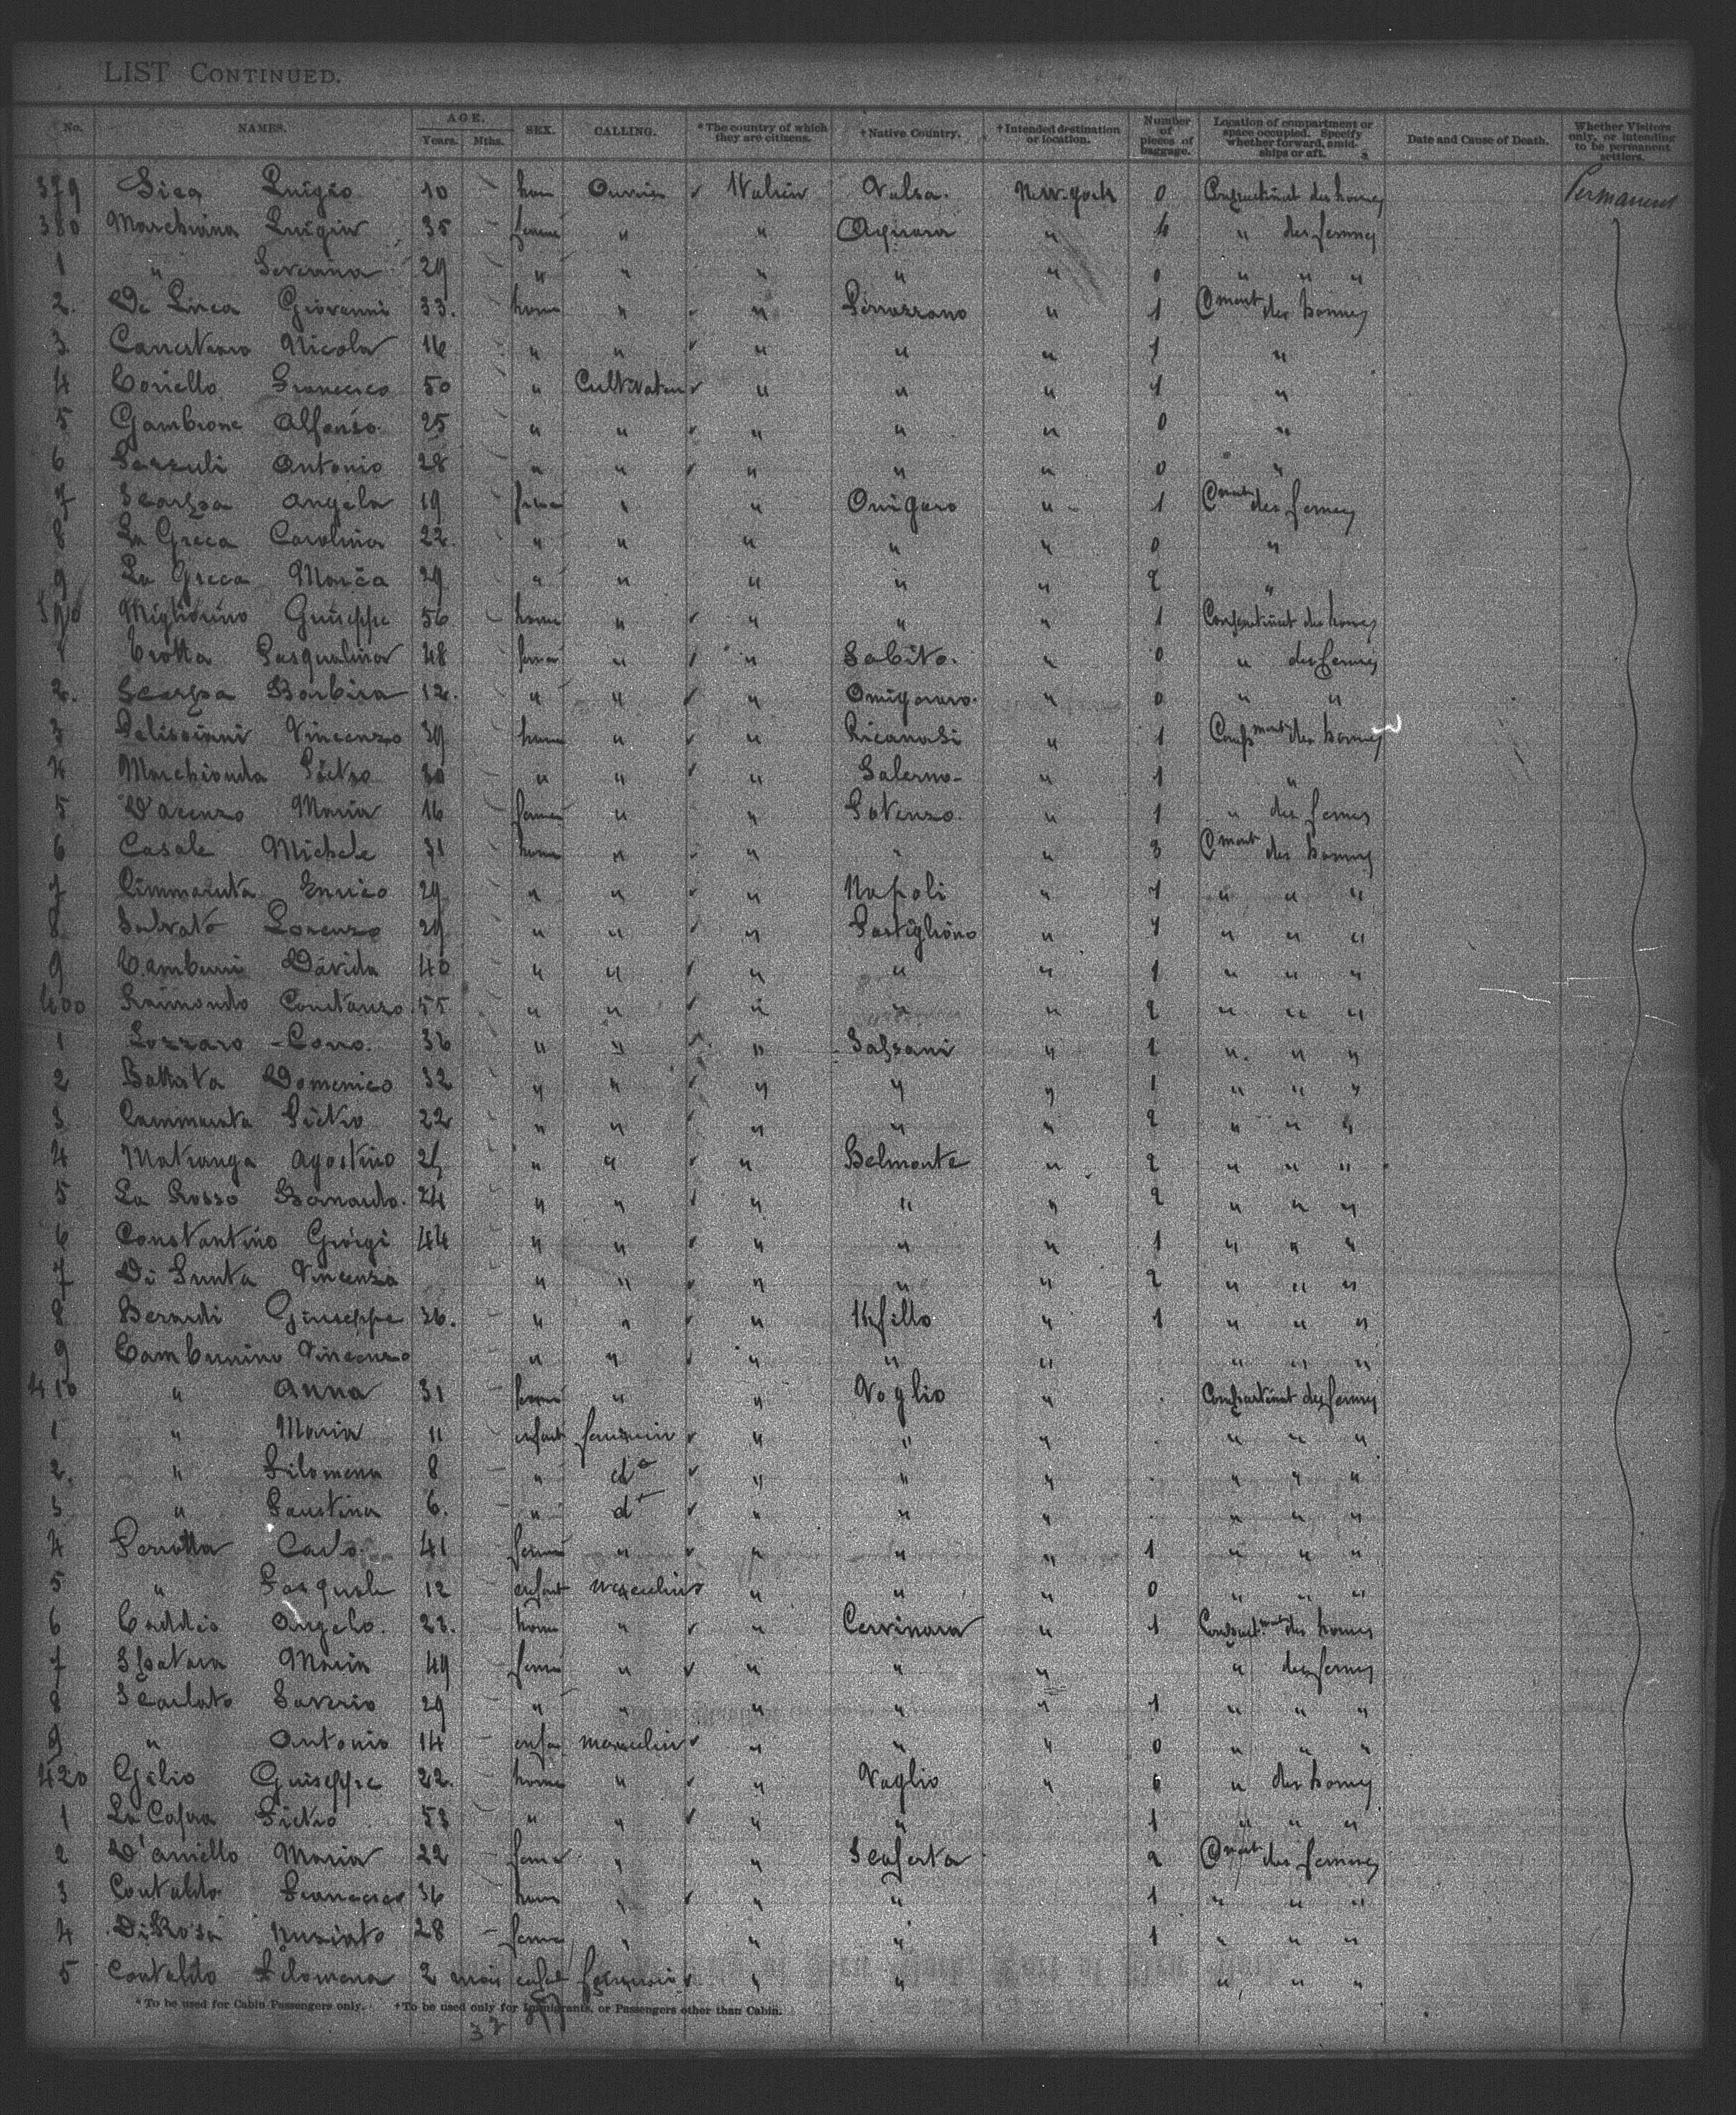 LIST CONTINUED.
No. NAMES. AGE. Years. Mths. SEX. CALLING. *The country of which they are citizens. †Native Country. †Intended destination or location. Number of pieces of baggage. Location of compartment or space occupied. Specify whether forward, amidships or aft. Date and Cause of Death. Whether Visitors only, or intending to be permanent settlers.
379 Sica Luigio 10 hom Ouvrier Italien Valsa. New-York 0 des homes Permanent
380 Marchiana Luigia 35 femme " " Aquara " " des femmes
1 " Severina 29 " " " " " 0 " " "
2. De Luca Giovanni 33. home " " " 1 Cment des homes
3 Canestraro Nicola 16 " " " " " 1 "
4 Coriello Francesco 50 " Cultivateur " " " 1 "
5 Gambrone Alfonso 25 " " " " " 0 "
6 Antonio 28 " " " " " 0 "
7 Scarpa Angela 19 feme " " Omigaro " 1 Cment des femes
8 La Greca Carolina 22. " " " " " 0 "
9 La Greca Maria 29 " " " " " 2 "
390 Migliorino Guiseppe 56 home " " " " 1 des homes
1 Trotta Pasqualina 48 feme " " Sabito. " 0 " des femes
2. Scarpa Barbira 12. " " " Omigaro. " 0 " "
3 Pelissiani Vincenzo 39 home " " Ricanati " 1 des homes
4 Marchionda Pietro 30 " " " Salerno - " 1 "
5 D'acenzo Maria 16 feme " " Potenzo. " 1 " des femes
6 Casale Michele 31 home " " " " 3 Cment des homes
7 Cimmaruta Enrico 29 " " " Napoli " 1 " " "
8 Salvato Lorenzo 29 " " " Postiglione " 1 " " "
9 Tamburri Davida 40 " " " " " 1 " " "
400 Raimondo Constanzo 55 " " " " " 2 " " "
1 Lozzaro - Cono. 36 " " " Sassani " 1 " " "
2 Battista Domenico 32 " " " " " 1 " " "
3 Cammarata Pietro 22 " " " " " 2 " " "
4 Matranga Agostino " " " Belmonte " 2 " " "
5 La Rosso Bernardo. 24 " " " " " 2 " " "
6 Constantino Giorgi 44 " " " " " 1 " " "
7 Di Sunta Vincenza " " " " " 2 " " "
8 Berardi Giuseppe 36. " " " " 1 " " "
9 Tamburino Vincenzo " " " " " " " "
410 " Anna 31 feme " " Voglio " des femes
1 " Maria 11 enfant feminin " " " " " "
2. " Filomena 8 " do " " " " " "
3 " Faustina 6. " do " " " " " "
4 Perrotta Carlo 41 feme " " " " 1 " " "
5 " Pasquale 12 enfant masculin " " 0 " " "
6 Taddeo Angelo. 23. home " " Cervinara " 1 des homes
7 Spatara Maria 49 feme " " " " " des femes
8 Scarlato Saverio 29 " " " " " 1 " " "
9 " Antonio 14 enfa masculin " " " 0 " " "
420 Gilio Guiseppe 22. home " " Vaglio " 0 " des homes
1 La Capra Pietro 53 " " " " 1 " " "
2 D'aniello Maria 22 feme " " Scaferta 2 Cment des femmes
3 Contaldo Francesco 36 home " " " 1 " " "
4 Di Rosa Nunziato 28 feme " " " 1 " " "
5 Contaldo Filomena 2 mois enfat feminin " " " " "
* To be used for Cabin Passengers only. †To be used only for Immigrants, or Passengers other than Cabin.